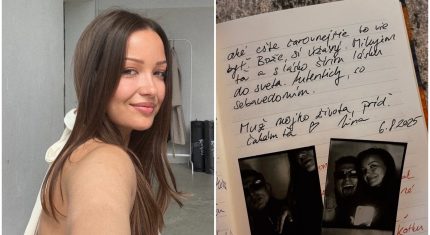 aké ešte čarovnejšie to vie
byť. Bože, si úžasný. Milujem
ťa a s láskou šírim lásku
do sveta. Autenticky, so
sebavedomím.
Muž môjho života, príď.
Čakám ťa ♡
6.8.2025